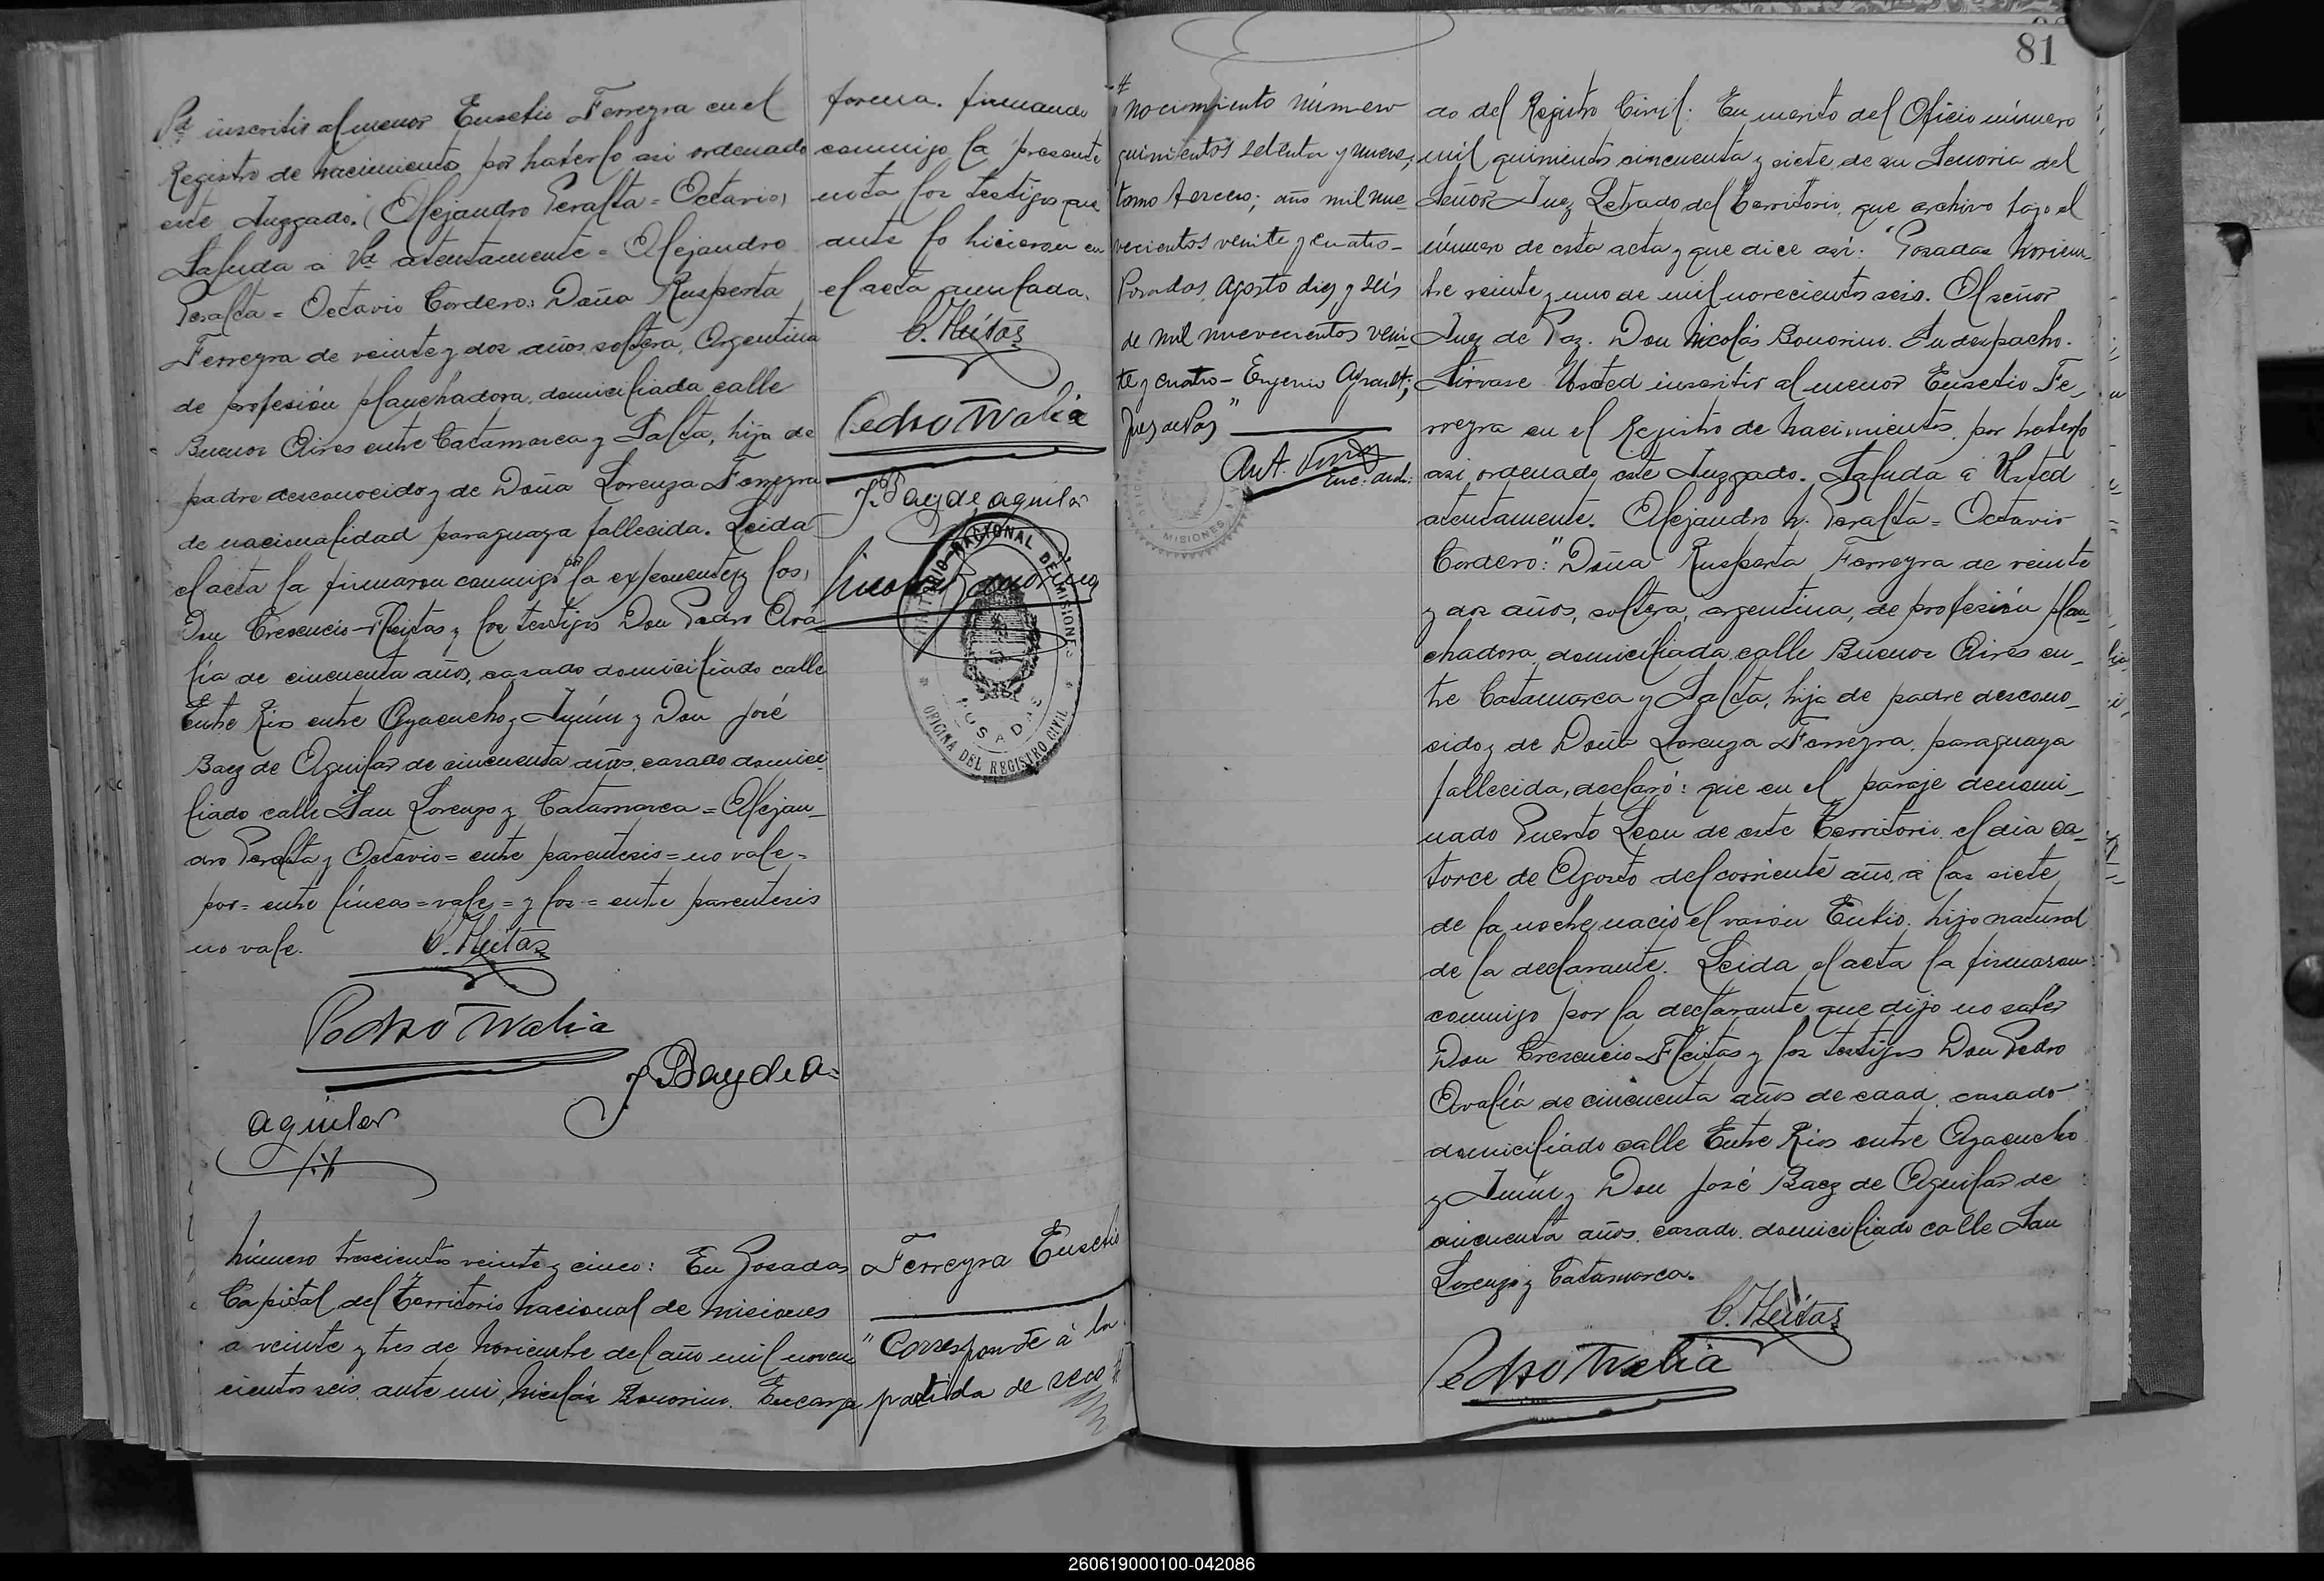 Vd inscribir al menor Eusebio Ferreyra en el
Registro de nacimientos por haberlo asi ordenado
este Juzgado. (Alejandro Peralta = Octavio)
Saluda á Vd atentamente = Alejandro
Peralta = Octavio Cordero: Doña Rusperta
Ferreyra de veinte y dos años, soltera, Argentina
de profesión planchadora, domiciliada calle
Buenos Aires entre Catamarca y Salta, hija de
padre desconocido y de Doña Lorenza Ferreyra
de nacionalidad paraguaya fallecida. Leida
el acta la firmaron conmigo por la exponente (y los)
Don Cresencio Fleitas y los testigos Don Pedro Ava
lía de cincuenta años, casado domiciliado calle
Entre Rios entre Ayacucho y Junín y Don José
Baez de Aguilar de cincuenta años, casado domici
liado calle San Lorenzo y Catamarca = Alejan_
dro Peralta y Octavio = entre parentesis = no vale =
por = entre líneas = vale = y los = entre parentesis
no vale.
C. Fleitas
Pedro Walia
J Baez de A=
aguilar
forma. firmando
conmigo la presente
nota los testigos que
ante lo hicieron en
el acta anulada.
C. Fleitas
Pedro Walia
J. Baez de aguilar
Nicolas Bonorino
TERRITORIO NACIONAL DE MISIONES
POSADAS
OFICINA DEL REGISTRO CIVIL
Número trescientos veinte y cinco: En Posadas
Capital del Territorio Nacional de Misiones
a veinte y tres de Noviembre del año mil noven
cientos seis, ante mi, Nicolás Bonorino. Encarga
Ferreyra Eusebio
"Corresponde á la
partida de reco #
81
#
"nocimiento número
quinientos setenta y nueve,
tomo tercero; año mil nue-
vecientos veinte y cuatro-
Posadas, agosto diez y seis
de mil nuevecientos vein-
te y cuatro - Eugenio Ayrault;
Juez de Paz"
Ant.
Enc.
MISIONES
do del Registro Civil: En merito del Oficio número
mil quinientos cincuenta y siete de su Senoria del
Señor Juez Letrado del Territorio, que archivo bajo el
número de esta acta y que dice asi: "Posadas Noviem_
bre veinte y uno de mil novecientos seis. Al señor
Juez de Paz. Don Nicolás Bonorino. Su despacho.
Sirvase Usted inscribir al menor Eusebio Fe_
rreyra en el Registro de Nacimientos, por haberlo
asi ordenado este Juzgado. Saluda á Usted
atentamente. Alejandro N. Peralta = Octavio
Cordero:" Doña Rusperta Ferreyra de veinte
y dos años, soltera, argentina, de profesión plan_
chadora, domiciliada calle Buenos Aires en_
tre Catamarca y Salta, hija de padre descono_
cido y de Doña Lorenza Ferreyra, paraguaya
fallecida, declaró: que en el paraje denomi_
nado Puerto Leon de este Territorio, el dia ca_
torce de Agosto del corriente año, á las siete
de la noche, nació el varón Eubio, hijo natural
de la declarante. Leida el acta la firmaron
conmigo por la declarante que dijo no saber
Don Cresencio Fleitas y los testigos Don Pedro
Avalía de cincuenta años de edad, casado
domiciliado calle Entre Rios entre Ayacucho
y Junín y Don José Baez de Aguilar de
cincuenta años, casado, domiciliado calle San
Lorenzo y Catamarca.
C. Fleitas
Pedro Walia
260619000100-042086